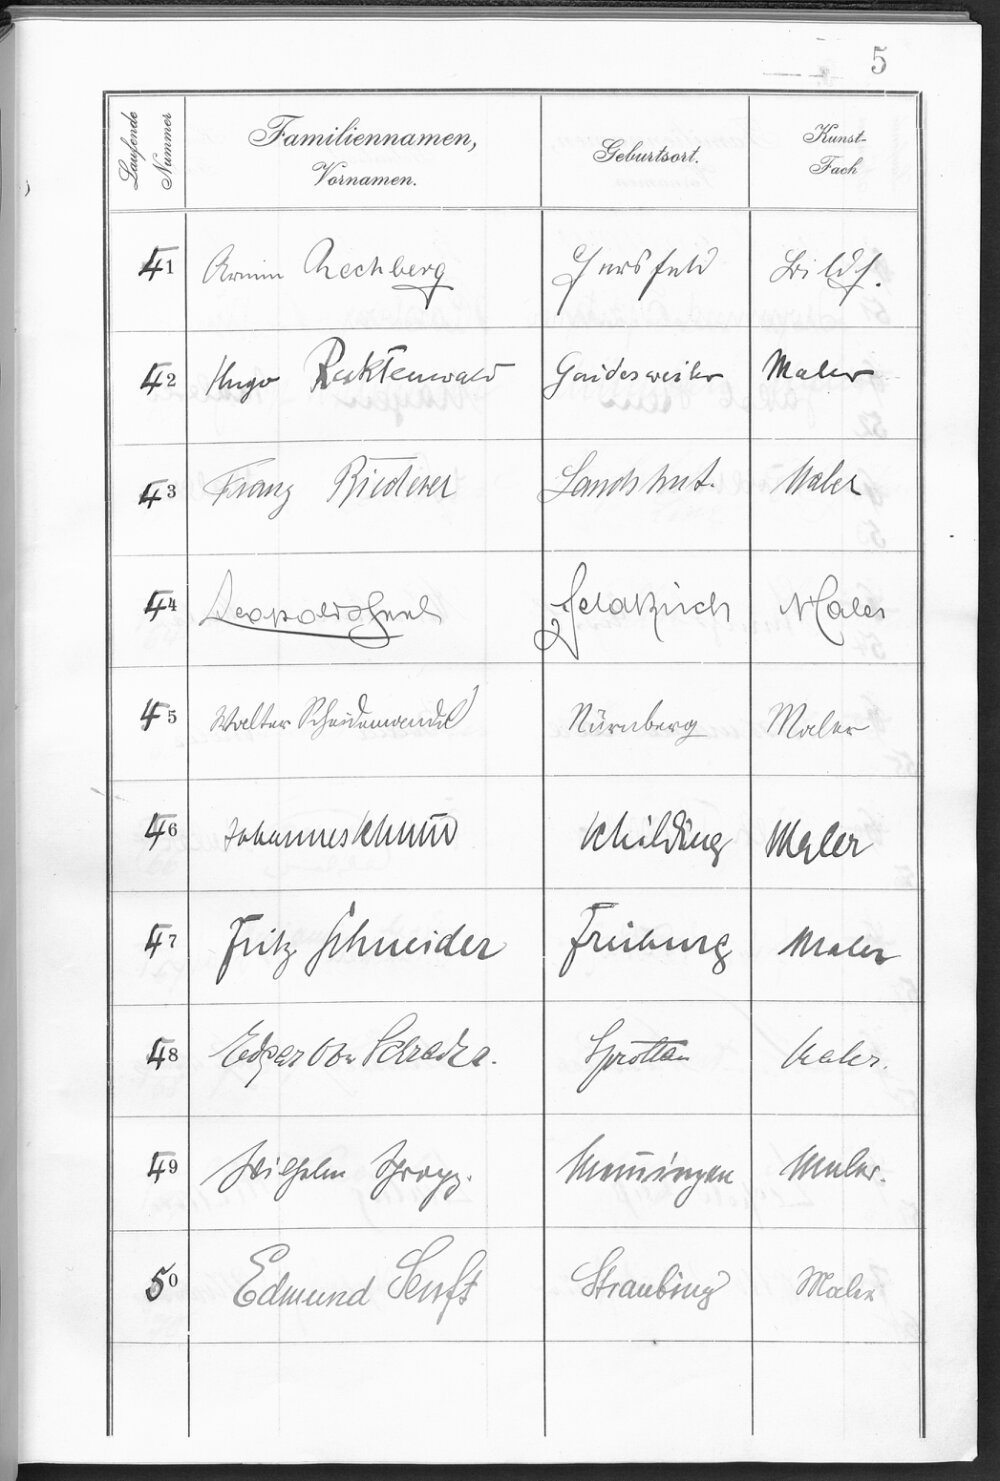 5
Laufende Nummer
Familiennamen, Vornamen.
Geburtsort.
Kunst-Fach
41 Armin Rechberg Hersfeld Bildh.
42 Hugo Recktenwald Gaidesweiler Maler
43 Franz Riederer Landshut. Maler
44 Leopold Feldkirch Maler
45 Walter Scheidemandel Nürnberg Maler
46 Johannes Maler
47 Fritz Schneider Freiburg Maler
48 Edgar von Sprottau Maler.
49 Wilhelm Maler.
50 Edmund Senft Straubing Maler